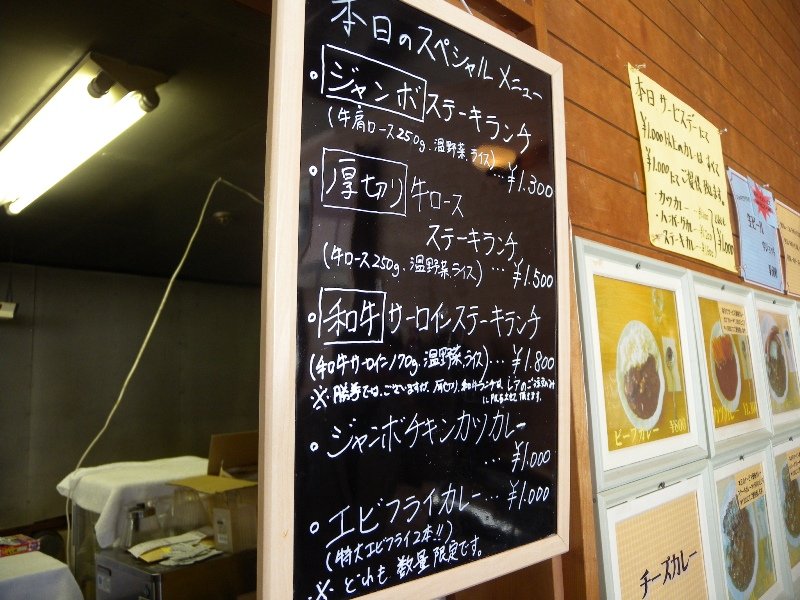 本日のスペシャルメニュー
。ジャンボステーキランチ
(牛肩ロース250g、温野菜、ライス)…¥1.300
。厚切り牛ロース
ステーキランチ
(牛ロース250g、温野菜、ライス)…¥1.500
。和牛サーロインステーキランチ
(和牛サーロイン170g、温野菜、ライス)…¥1.800
※勝手ではございますが、厚切り、和牛ランチは、レアのご注文のみ
に限らせて頂きます。
。ジャンボチキンカツカレー
…¥1.000
。エビフライカレー…¥1.000
(特大エビフライ2本!!)
※どれも数量限定です。
本日サービスデーにて
¥1,000以上のカレーはすべて
¥1,000にてご提供致します。
・カツカレー
・ハンバーグカレー
・ステーキカレー
¥1,000
生ビール
ビーフカレー ¥800
カツカレー
チーズカレー